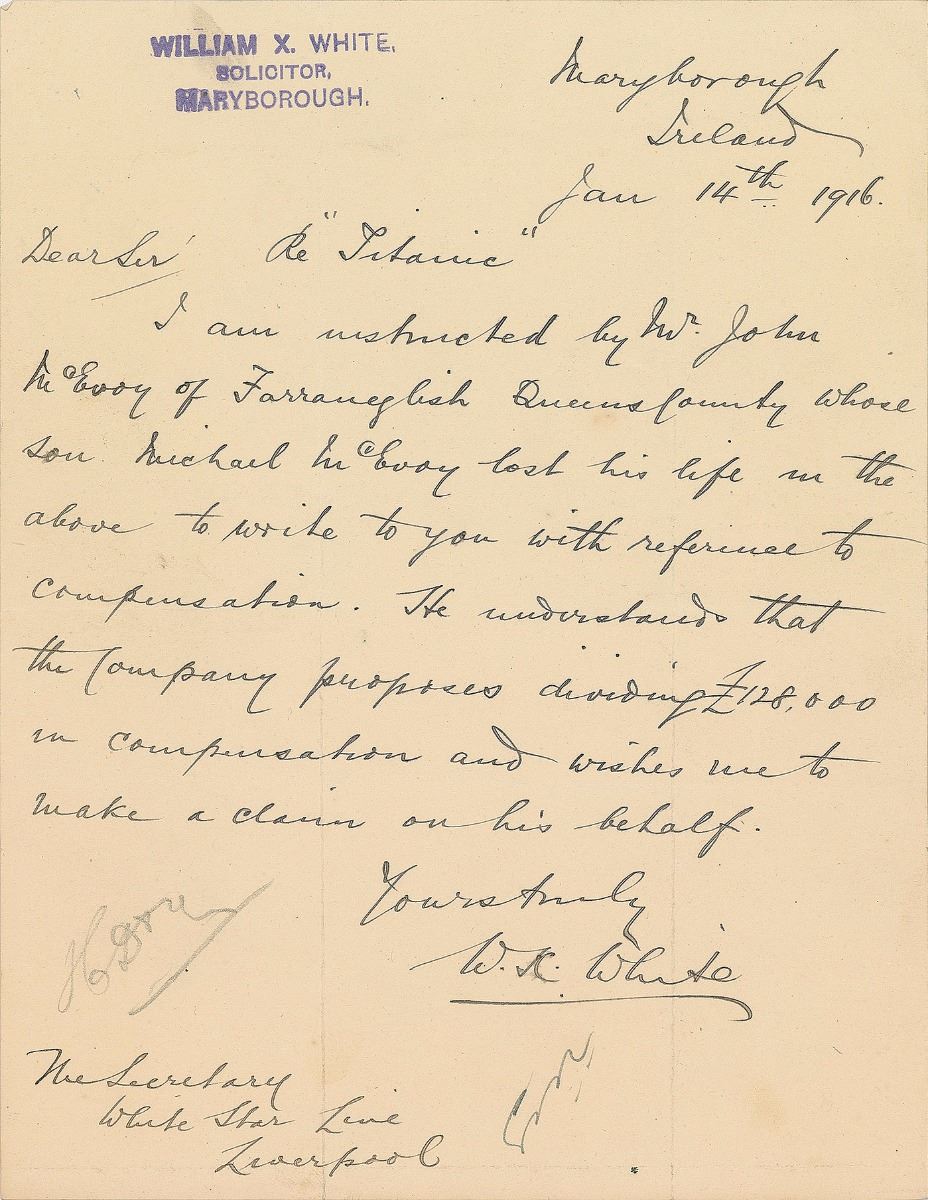 WILLIAM X. WHITE,
SOLICITOR,
MARYBOROUGH.
Maryborough
Ireland
Jan 14th 1916.
Dear Sir Re "Titanic"
I am instructed by Mr. John
McEvoy of Farraneglish Queens County whose
son Michael McEvoy lost his life in the
above to write to you with reference to
compensation. He understands that
the Company proposes dividing £128,000
in compensation and wishes me to
make a claim on his behalf.
Yours truly
W. X. White
The Secretary
White Star Line
Liverpool